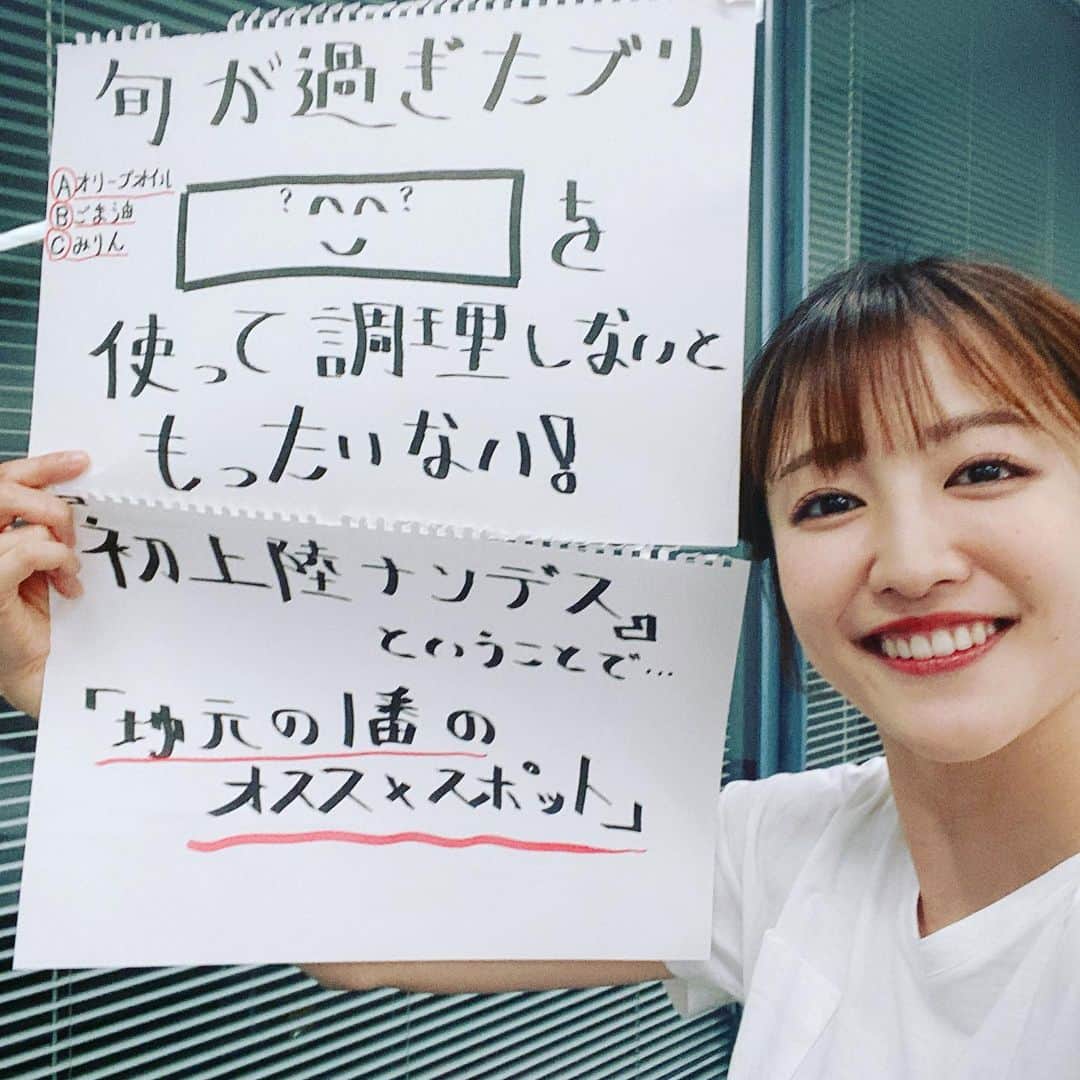 旬が過ぎたブリ
Ⓐオリーブオイル
Ⓑごま油
Ⓒみりん
? ?を
使って調理しないと
もったいない!
『初上陸ナンデス』
ということで…
「地元の1番の
オススメスポット」